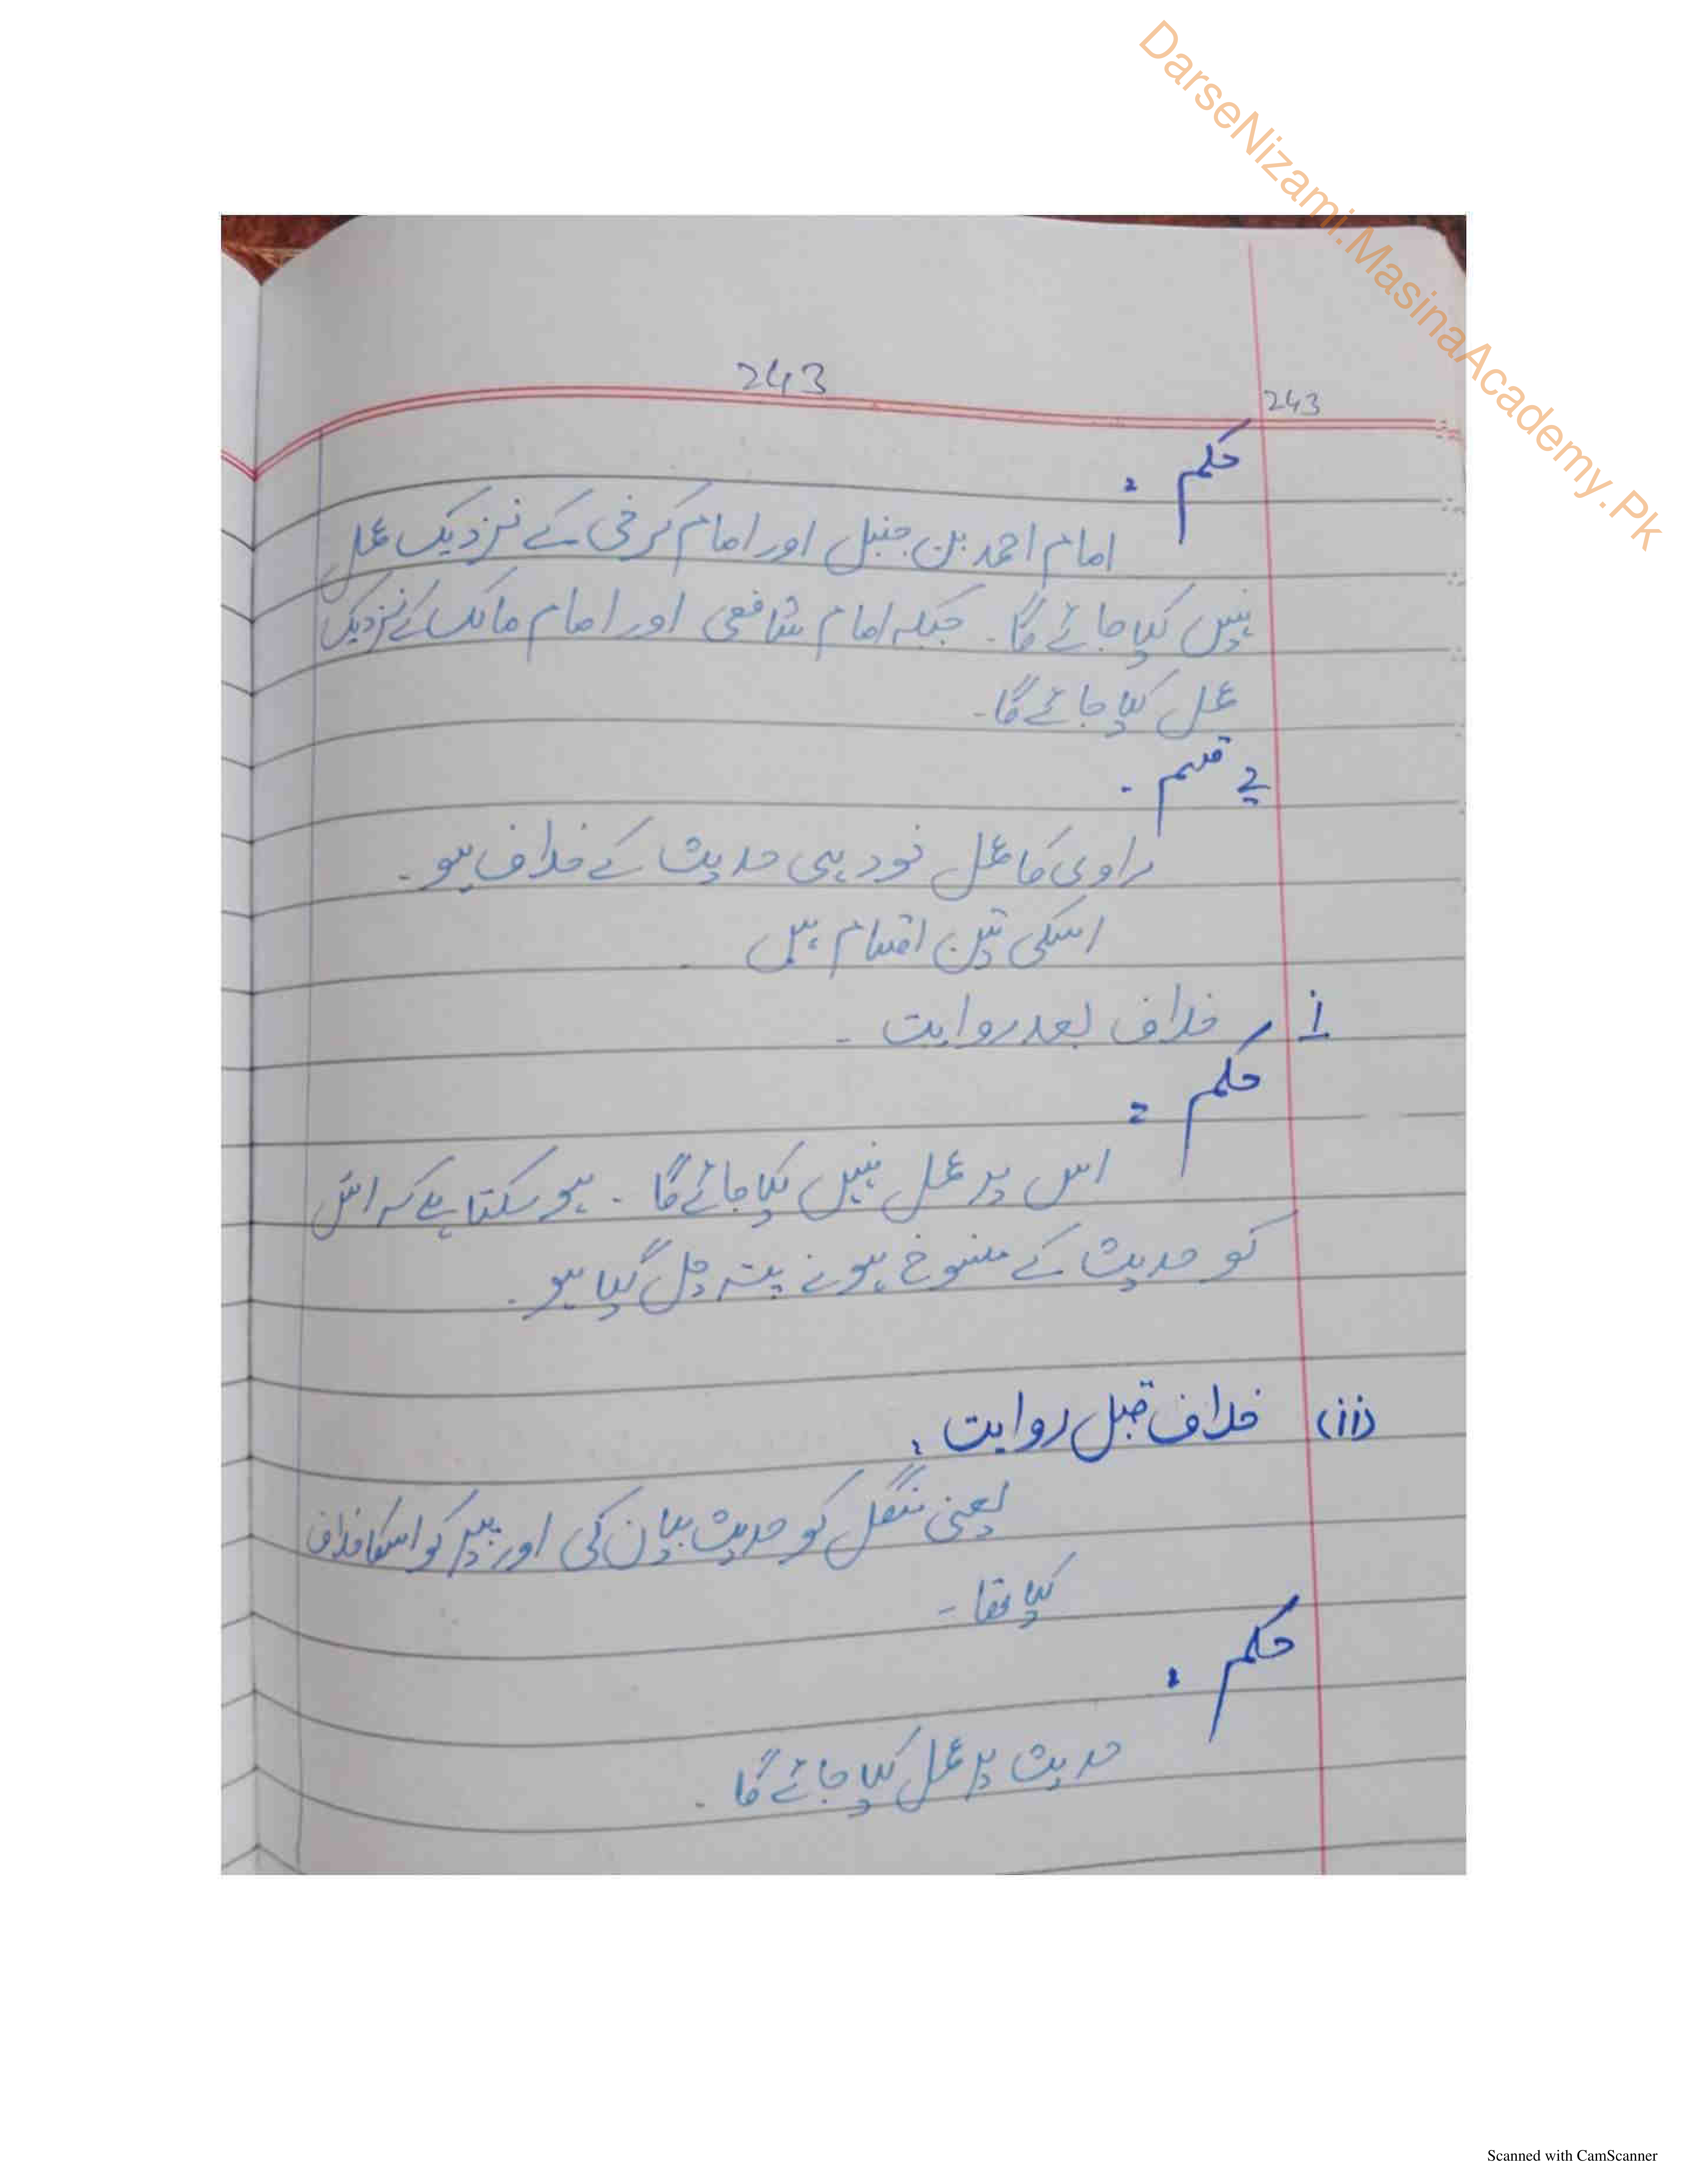 DarseNizami.MasinaAcademy.Pk
243
243
حکم :
امام احمد بن حنبل اور امام کرخی کے نزدیک عمل
نہیں کیا جائے گا۔ جبکہ امام شافعی اور امام مالک کے نزدیک
عمل کیا جائے گا۔
قسم ۔
راوی کا عمل خود ہی حدیث کے خلاف ہو ۔
اسکی تین اقسام ہیں
i خلاف بعد روایت ۔
حکم =
اس پر عمل نہیں کیا جائے گا ۔ ہو سکتا ہے کہ اس
کو حدیث کے منسوخ ہونے پتہ چل گیا ہو ۔
(ii) خلاف قبل روایت :
یعنی منگل کو حدیث بیان کی اور پیر کو اسکا خلاف
کیا تھا ۔
حکم :
حدیث پر عمل کیا جائے گا ۔
Scanned with CamScanner